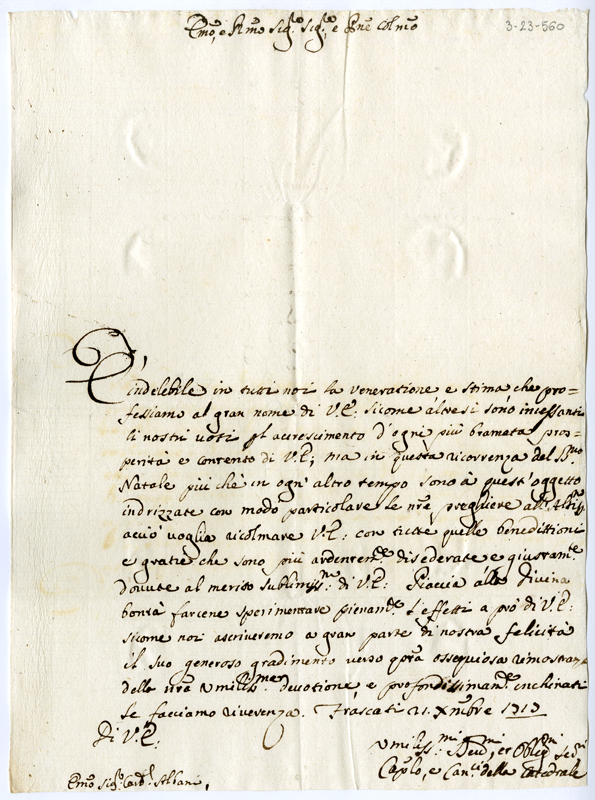 Emo, e Rmo Sig.re Sig.re, e Pne Colmo
3-23-560
E' indelebile in tutti noi la veneratione e stima che pro=
fessiamo al gran nome di V.E: sicome altresi sono incessanti
li nostri voti pl accrescimento d'ogni più bramata pros=
perità e contento di V.E; ma in questa ricorrenza del SSmo
Natale più che in ogn' altro tempo sono à quest' oggetto
indrizzate con modo particolare le nre preghiere all' Altiss.mo
acciò voglia ricolmare V.E: con tutte quelle benedittioni
e gratie che sono più ardentem.te disederate e giustam.te
dovute al merito sublimiss.mo di V.E: Piaccia alla Divina
bontà farcene sperimentare pienam.te l'effetti a prò di V.E:
sicome noi ascriveremo a gran parte di nostra felicità
il suo generoso gradimento verso qsta ossequiosa rimostranza
della nra umiliss.ma devotione, e profondissimam.te inchinati
le facciamo riverenza. Frascati 21. Xmbre 1713
Di V.E:
Emo Sig.re Card.l Albani,
Umiliss.mi Dev.mi, et Oblig.mi Ser.ri
Caplo, e Can.ci della Catedrale